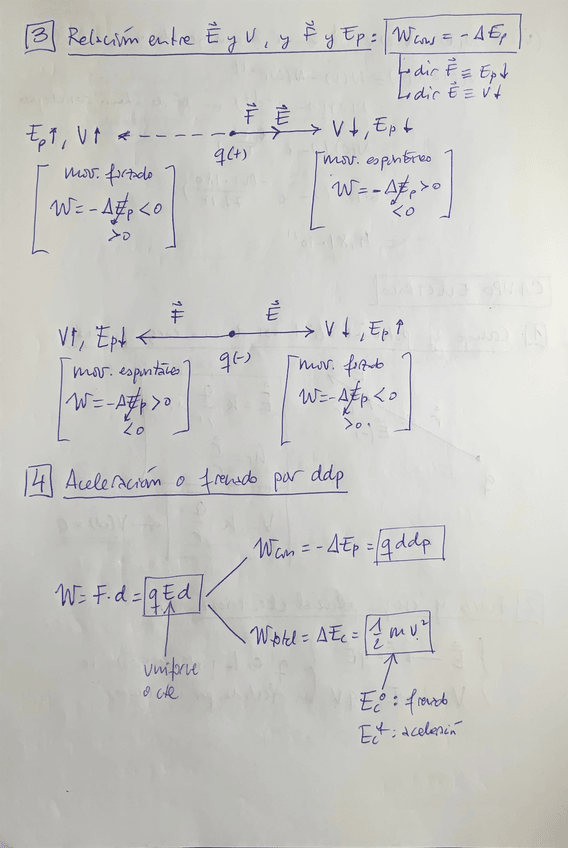 3 Relación entre E⃗ y V, y F⃗ y Ep: Wcons = -ΔEp
↳ dir F⃗ ≡ Ep↓
↳ dir E⃗ ≡ V↓
F⃗ E⃗
Ep↑, V↑ V↓, Ep↓
q(+)
mov. forzado
W = -ΔEp < 0
>0
mov. espontáneo
W = -ΔEp > 0
<0
F⃗ E⃗
V↑, Ep↓ V↓, Ep↑
q(-)
mov. espontáneo
W = -ΔEp > 0
<0
mov. forzado
W = -ΔEp < 0
>0.
4 Aceleración o frenado por ddp
Wcons = -ΔEp = q ddp
W = F·d = qEd
Wtotal = ΔEc = 1/2 m v²
uniforme
o cte
Ec⁰: frenado
Ec⁺: aceleración